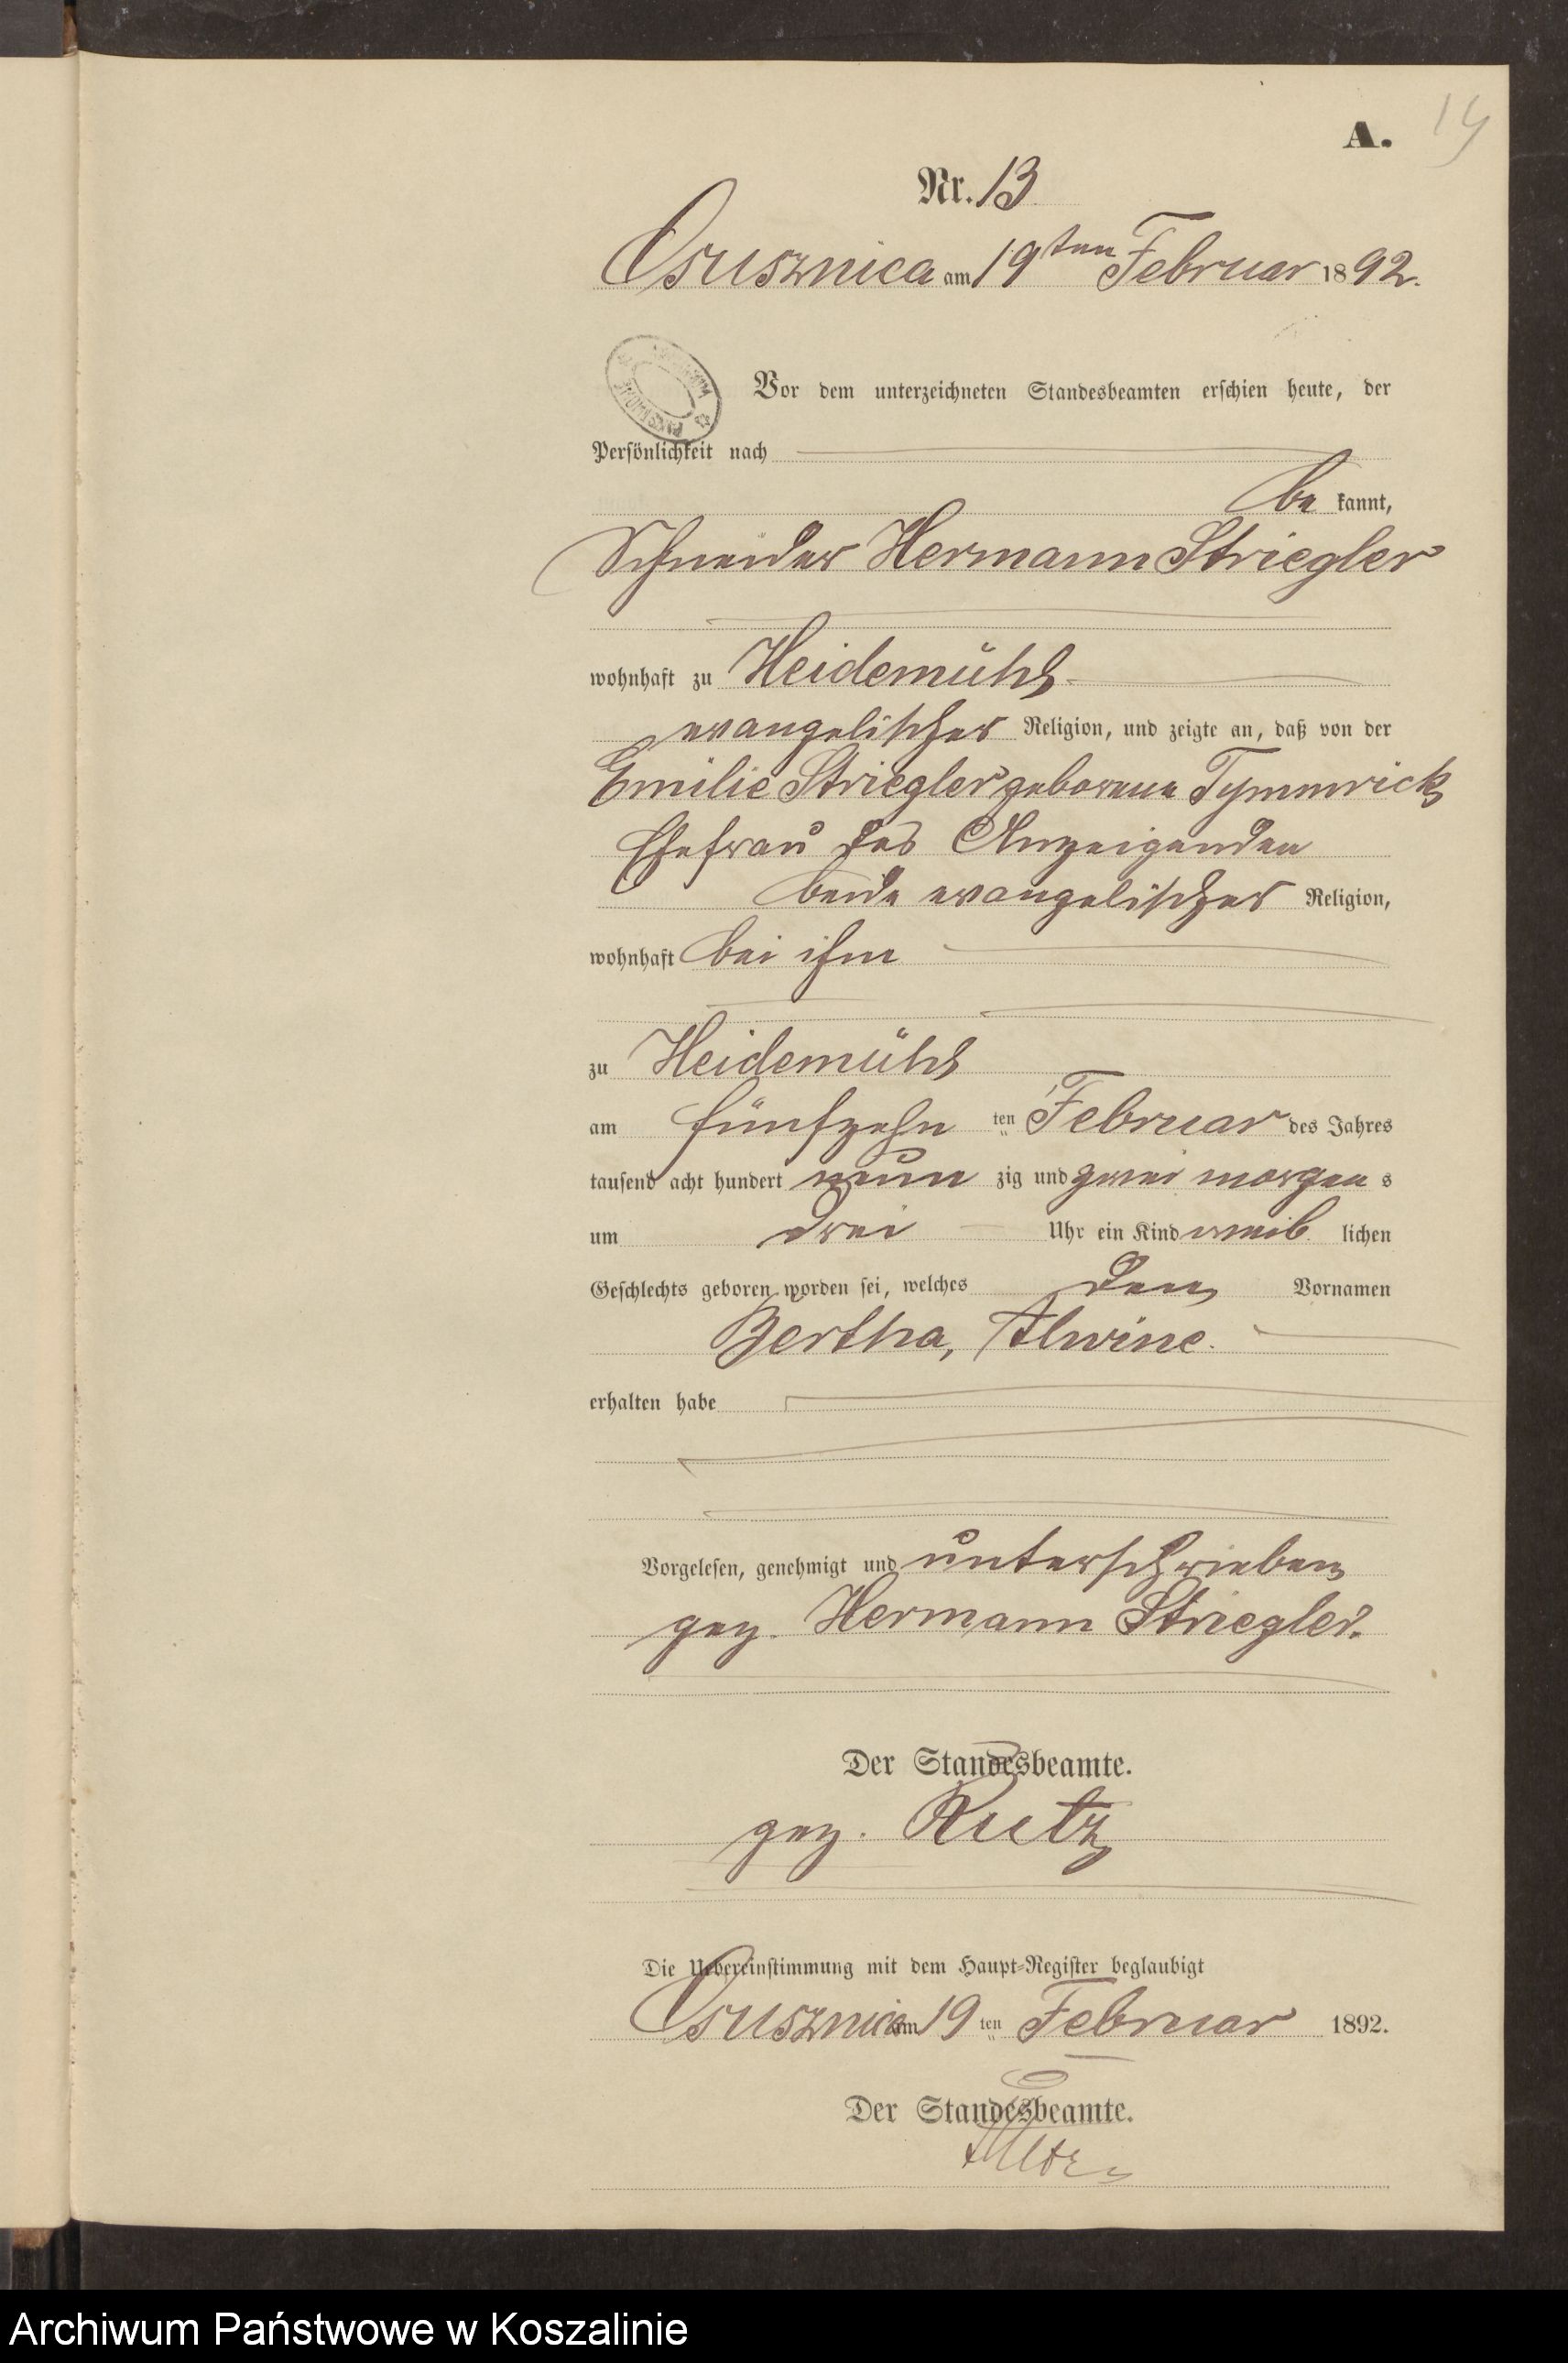 A. 14
Nr. 13
Osusznica am 19ten Februar 1892.
Vor dem unterzeichneten Standesbeamten erschien heute, der
Persönlichkeit nach
be kannt,
Schneider Hermann Striegler
wohnhaft zu Heidemühl
evangelischer Religion, und zeigte an, daß von der
Emilie Striegler geborene Tymmrick
Ehefrau des Anzeigenden
beide evangelischer Religion,
wohnhaft bei ihm
zu Heidemühl
am fünfzehn ten Februar des Jahres
tausend acht hundert neun zig und zwei morgen s
um drei Uhr ein Kind weib lichen
Geschlechts geboren worden sei, welches den Vornamen
Bertha, Alwine.
erhalten habe
Vorgelesen, genehmigt und unterschrieben
gez. Hermann Striegler.
Der Standesbeamte.
gez. Rutz
Die Uebereinstimmung mit dem Haupt-Register beglaubigt
Osusznica am 19 ten Februar 1892.
Der Standesbeamte.
Archiwum Państwowe w Koszalinie